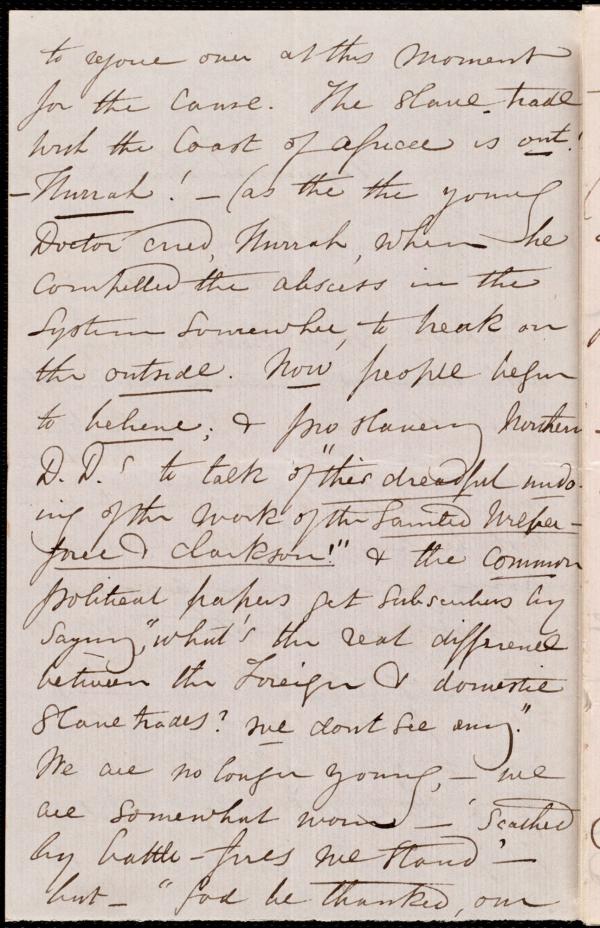 to rejoice over at this moment
for the cause. The slave-trade
with the Coast of Africa is out!
– Hurrah! – (as the the young
Doctor cried, Hurrah, when he
compelled the abscess in the
system somewhere, to break on
the outside. Now people begin
to believe; & pro slavery Northern
D.D.'s to talk of "this dreadful undo-
ing of the work of the Sainted Wilber-
force & Clarkson!" & the common
political papers get subscribers by
saying, "what's the real difference
between the Foreign & domestic
Slave trades? we dont see any."
We are no longer young, – we
are somewhat worn – 'Scathed
by battle-fires we stand' –
but – "God be thanked, our